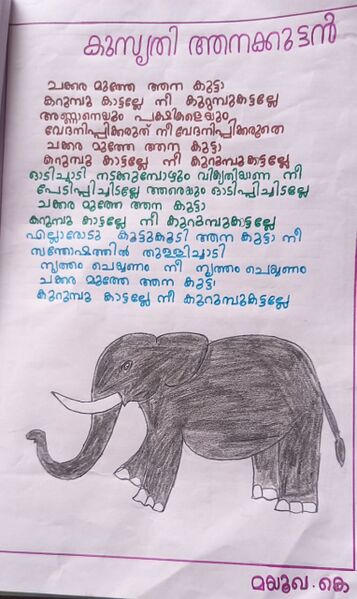 കുസൃതി ആനക്കുട്ടൻ
ചക്കര മുത്തേ ആന കുട്ടാ
കുറുമ്പു കാട്ടല്ലേ നീ കുറുമ്പുകട്ടല്ലേ
അണ്ണാനെയും പക്ഷികളെയും
വേദനിപ്പിക്കരുത് നീ വേദനിപ്പിക്കരുതെ
ചക്കര മുത്തേ ആന കുട്ടാ
കുറുമ്പു കാട്ടല്ലേ നീ കുറുമ്പുകട്ടല്ലേ
ഓടിച്ചാടി നടക്കുമ്പോഴും വികൃതിയാന നീ
പേടിപ്പിച്ചിടല്ലേ ആരെയും ഓടിപ്പിച്ചിടല്ലേ
ചക്കര മുത്തേ ആന കുട്ടാ
കുറുമ്പു കാട്ടല്ലേ നീ കുറുമ്പുകട്ടല്ലേ
എല്ലാരോടു കൂട്ടുകൂടി ആന കുട്ടാ നീ
സന്തോഷത്തിൽ തുള്ളിച്ചാടി
നൃത്തം ചെയ്യണം നീ നൃത്തം ചെയ്യണം
ചക്കര മുത്തേ ആന കുട്ടാ
കുറുമ്പു കാട്ടല്ലേ നീ കുറുമ്പുകട്ടല്ലേ
മയൂഖ. കെ